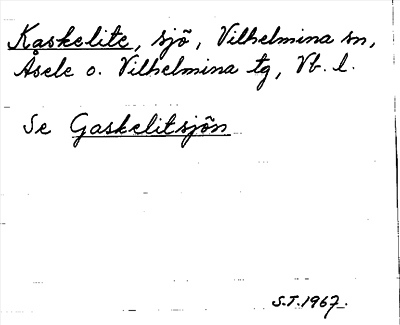 Kaskelite, sjö, Vilhelmina sn,
Åsele o. Vilhelmina tg, Vb. l.
Se Gaskelitsjön
S.T. 1967.